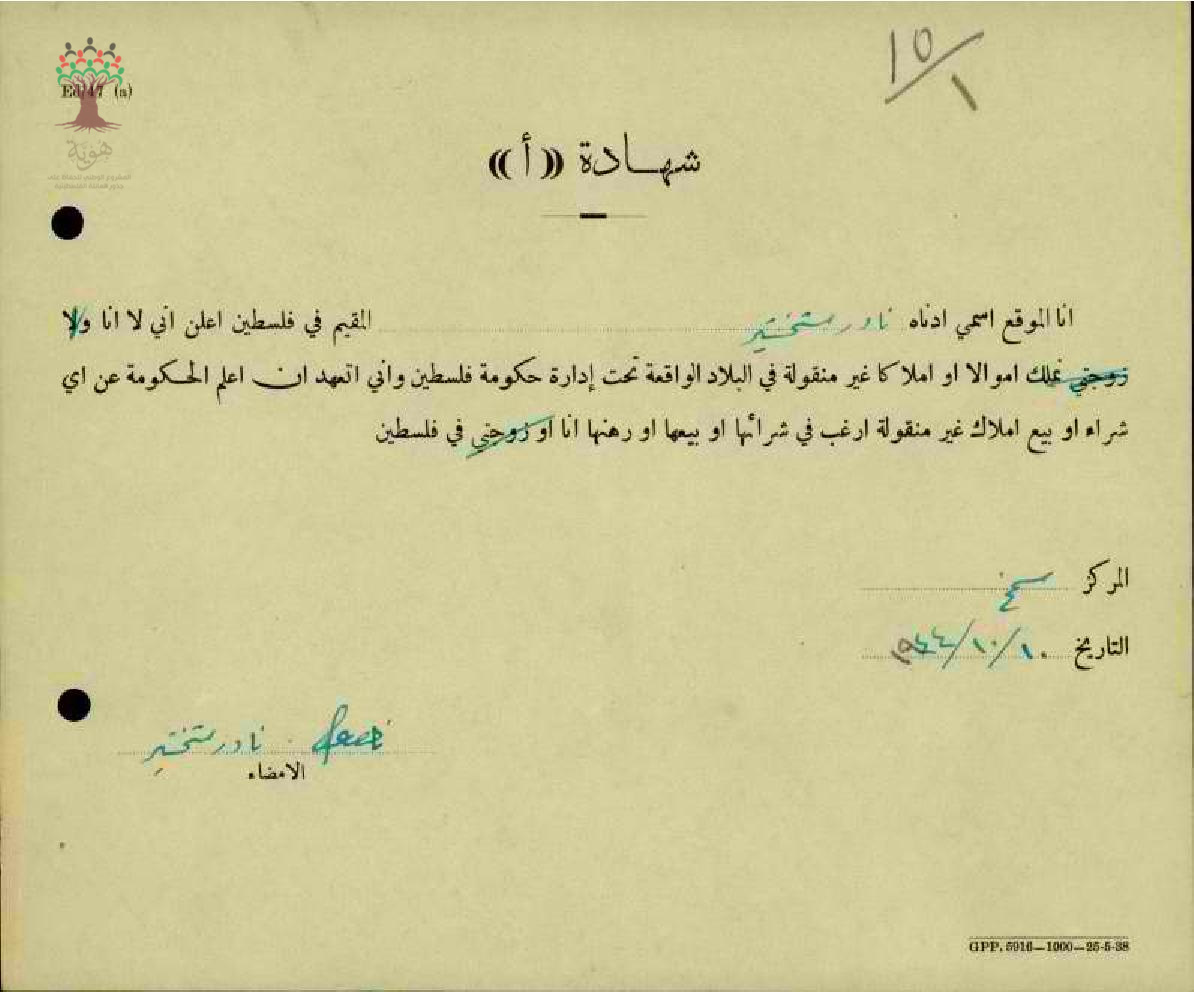 ١٥/١
Ed/47 (a)
هوية
المشروع الوطني للحفاظ على
جذور العائلة الفلسطينية
شهادة ((أ))
انا الموقع اسمي ادناه نادر المقيم في فلسطين اعلن اني لا انا ولا
زوجتي نملك اموالا او املاكا غير منقولة في البلاد الواقعة تحت إدارة حكومة فلسطين واني اتعهد ان اعلم الحكومة عن اي
شراء او بيع املاك غير منقولة ارغب في شرائها او بيعها او رهنها انا او زوجتي في فلسطين
المركز سمخ
التاريخ ١٠/١٠/١٩٤٤
نادر
الامضاء
GPP. 5916—1000—25-5-38